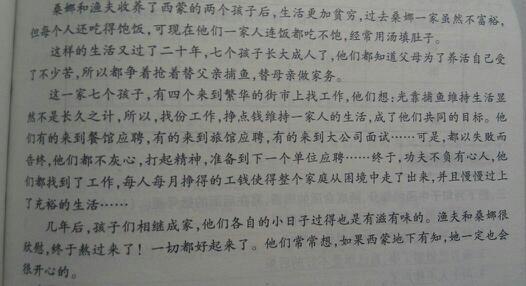 桑娜和渔夫收养了西蒙的两个孩子后，生活更加贫穷，过去桑娜一家虽然不富裕，
但每个人还吃得饱饭，可现在他们一家人连饭都吃不饱，经常用汤填肚子。
这样的生活又过了二十年，七个孩子长大成人了，他们都知道父母为了养活自己受
了不少苦，所以都争着抢着替父亲捕鱼，替母亲做家务。
这一家七个孩子，有四个来到繁华的街市上找工作，他们想：光靠捕鱼维持生活显
然不是长久之计，所以，找份工作，挣点钱维持一家人的生活，成了他们共同的目标。他
们有的来到餐馆应聘，有的来到旅馆应聘，有的来到大公司面试……可是，都以失败而
告终，他们都不灰心，打起精神，准备到下一个单位应聘……终于，功夫不负有心人，他
们都找到了工作，每人每月挣得的工钱使得整个家庭从困境中走了出来，并且慢慢过上
了充裕的生活……
几年后，孩子们相继成家，他们各自的小日子过得也是有滋有味的。渔夫和桑娜很
欣慰，终于熬过来了！一切都好起来了。他们常常想，如果西蒙地下有知，她一定也会
很开心的。